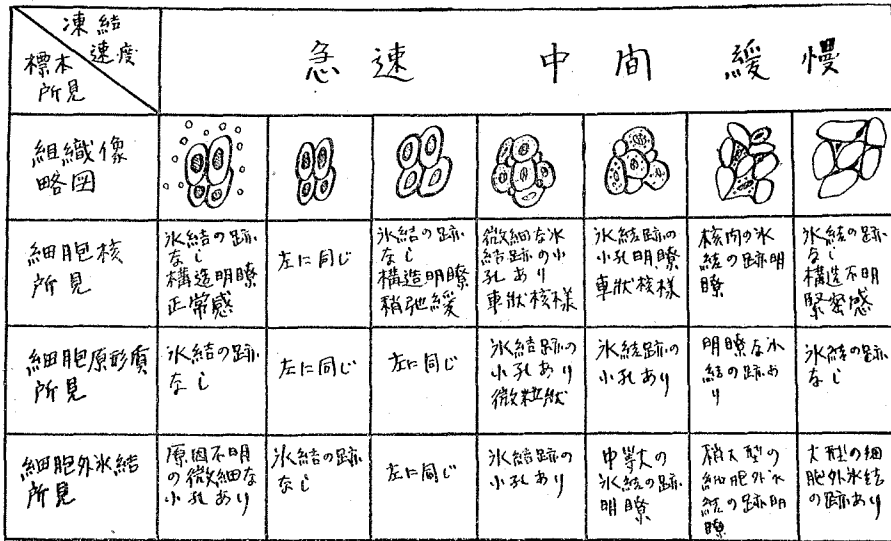 凍結
速度
標本
所見
急速 中間 緩慢
組織像
略図
細胞核
所見
氷結の跡
なし
構造明瞭
正常感
左に同じ
氷結の跡
なし
構造明瞭
稍弛緩
微細な氷
結跡の小
孔あり
車状核様
氷結跡の
小孔明瞭
車状核様
核内の氷
結の跡明
瞭
氷結の跡
なし
構造不明
緊密感
細胞原形質
所見
氷結の跡
なし
左に同じ
左に同じ
氷結跡の
小孔あり
微粒状
氷結跡の
小孔あり
明瞭な氷
結の跡あ
り
氷結の跡
なし
細胞外氷結
所見
原因不明
の微細な
小孔あり
氷結の跡
なし
左に同じ
氷結跡の
小孔あり
中等大の
氷結の跡
明瞭
稍大型の
細胞外氷
結の跡明
瞭
大型の細
胞外氷結
の跡あり